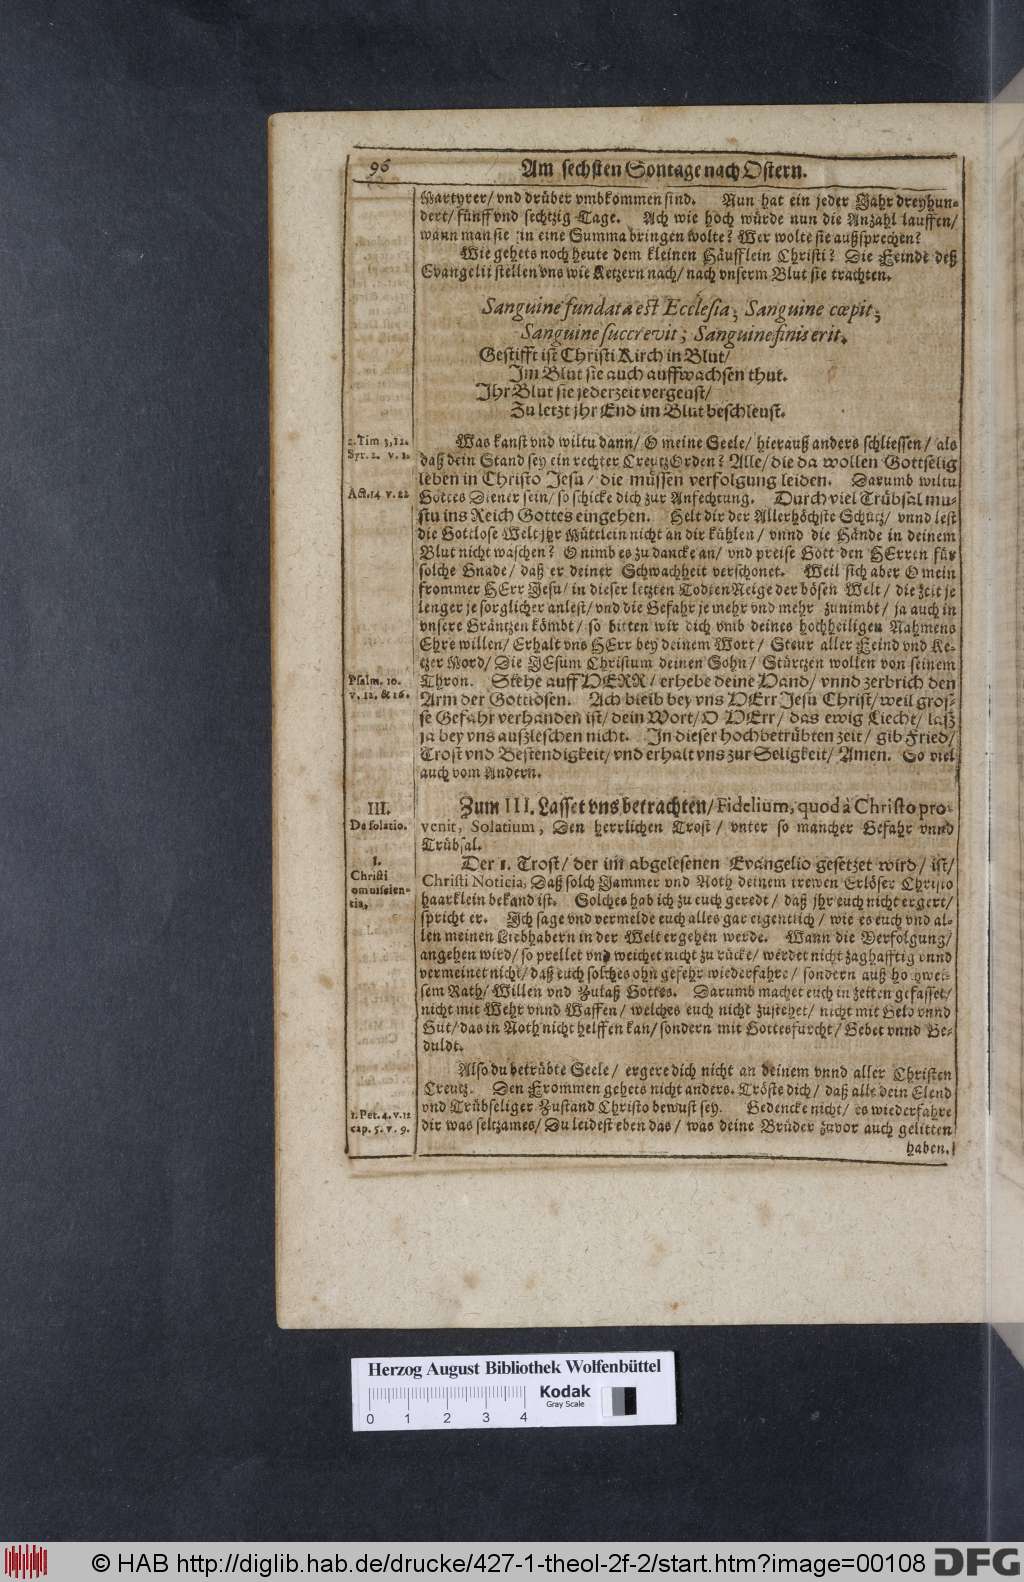 96
Am sechsten Sontage nach Ostern.
Martyrer/ vnd drüber vmbkommen sind. Nun hat ein jeder Jahr dreyhun-
dert/ fünff vnd sechtzig Tage. Ach wie hoch würde nun die Anzahl lauffen/
wann man sie in eine Summa bringen wolte? Wer wolte sie außsprechen?
Wie gehets noch heute dem kleinen Häufflein Christi? Die Feinde deß
Evangelii stellen vns wie Ketzern nach/ nach vnserm Blut sie trachten.
Sanguine fundata est Ecclesia; Sanguine cœpit;
Sanguine succrevit; Sanguine finis erit.
Gestifft ist Christi Kirch in Blut/
Im Blut sie auch auffwachsen thut.
Ihr Blut sie jederzeit vergeust/
Zu letzt jhr End im Blut beschleust.
2. Tim 3, 12.
Syr. 2. v. 1.
Act. 14 v. 22
Was kanst vnd wiltu dann/ O meine Seele/ hierauß anders schliessen/ als
daß dein Stand sey ein rechter CreutzOrden? Alle/ die da wollen Gottselig
leben in Christo Jesu/ die müssen verfolgung leiden. Darumb wiltu
Gottes Diener sein/ so schicke dich zur Anfechtung. Durch viel Trübsal mu-
stu ins Reich Gottes eingehen. Helt dir der Allerhöchste Schütz/ vnnd lest
die Gottlose Welt jhr Müttlein nicht an dir kühlen/ vnnd die Hände in deinem
Blut nicht waschen? O nimb es zu dancke an/ vnd preise Gott den HErren für
solche Gnade/ daß er deiner Schwachheit verschonet. Weil sich aber O mein
frommer HErr Jesu/ in dieser letzten TodtenNeige der bösen Welt/ die zeit je
lenger je sorglicher anlest/ vnd die Gefahr je mehr vnd mehr zunimbt/ ja auch in
vnsere Gräntzen kömbt/ so bitten wir dich vmb deines hochheiligen Nahmens
Ehre willen/ Erhalt vns HErr bey deinem Wort/ Steur aller Feind vnd Ke-
tzer Mord/ Die JEsum Christum deinen Sohn/ Stürtzen wollen von seinem
Psalm. 10.
v. 12. & 16.
Thron. Stehe auff HERR/ erhebe deine Hand/ vnnd zerbrich den
Arm der Gottlosen. Ach bleib bey vns HErr Jesu Christ/ weil gros-
se Gefahr verhanden ist/ dein Wort/ O HErr/ das ewig Liecht/ laß
ja bey vns außleschen nicht. In dieser hochbetrübten zeit/ gib Fried/
Trost vnd Bestendigkeit/ vnd erhalt vns zur Seligkeit/ Amen. So viel
auch vom Andern.
III.
De solatio.
Zum III. Lasset vns betrachten/ Fidelium, quod à Christo pro-
venit, Solatium, Den herrlichen Trost/ vnter so mancher Gefahr vnnd
Trübsal.
1.
Christi
omniscien-
tia.
Der 1. Trost/ der im abgelesenen Evangelio gesetzet wird/ ist/
Christi Noticia, Daß solch Jammer vnd Noth deinem trewen Erlöser Christo
haarklein bekand ist. Solches hab ich zu euch geredt/ daß jhr euch nicht ergert/
spricht er. Ich sage vnd vermelde euch alles gar eigentlich/ wie es euch vnd al-
len meinen Liebhabern in der Welt ergehen werde. Wann die Verfolgung/
angehen wird/ so prellet vnd weichet nicht zu rücke/ werdet nicht zaghafftig vnnd
vermeinet nicht/ daß euch solches ohn gefehr wiederfahre/ sondern auß hochwei-
sem Rath/ Willen vnd Zulaß Gottes. Darumb machet euch in zeiten gefasset/
nicht mit Wehr vnnd Waffen/ welches euch nicht zustehet/ nicht mit Geld vnnd
Gut/ das in Noth nicht helffen kan/ sondern mit Gottesfurcht/ Gebet vnnd Ge-
duldt.
Also du betrübte Seele/ ergere dich nicht an deinem vnnd aller Christen
Creutz. Den Frommen gehets nicht anders. Tröste dich/ daß alle dein Elend
1. Pet. 4. v. 12
cap. 5. v. 9.
vnd Trübseliger Zustand Christo bewust sey. Gedencke nicht/ es wiederfahre
dir was seltzames/ Du leidest eben das/ was deine Brüder zuvor auch gelitten
haben.
Herzog August Bibliothek Wolfenbüttel
0 1 2 3 4
Kodak
Gray Scale
© HAB http://diglib.hab.de/drucke/427-1-theol-2f-2/start.htm?image=00108
DFG